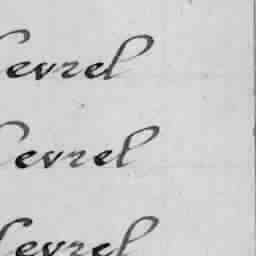 evrel
evrel
evrel